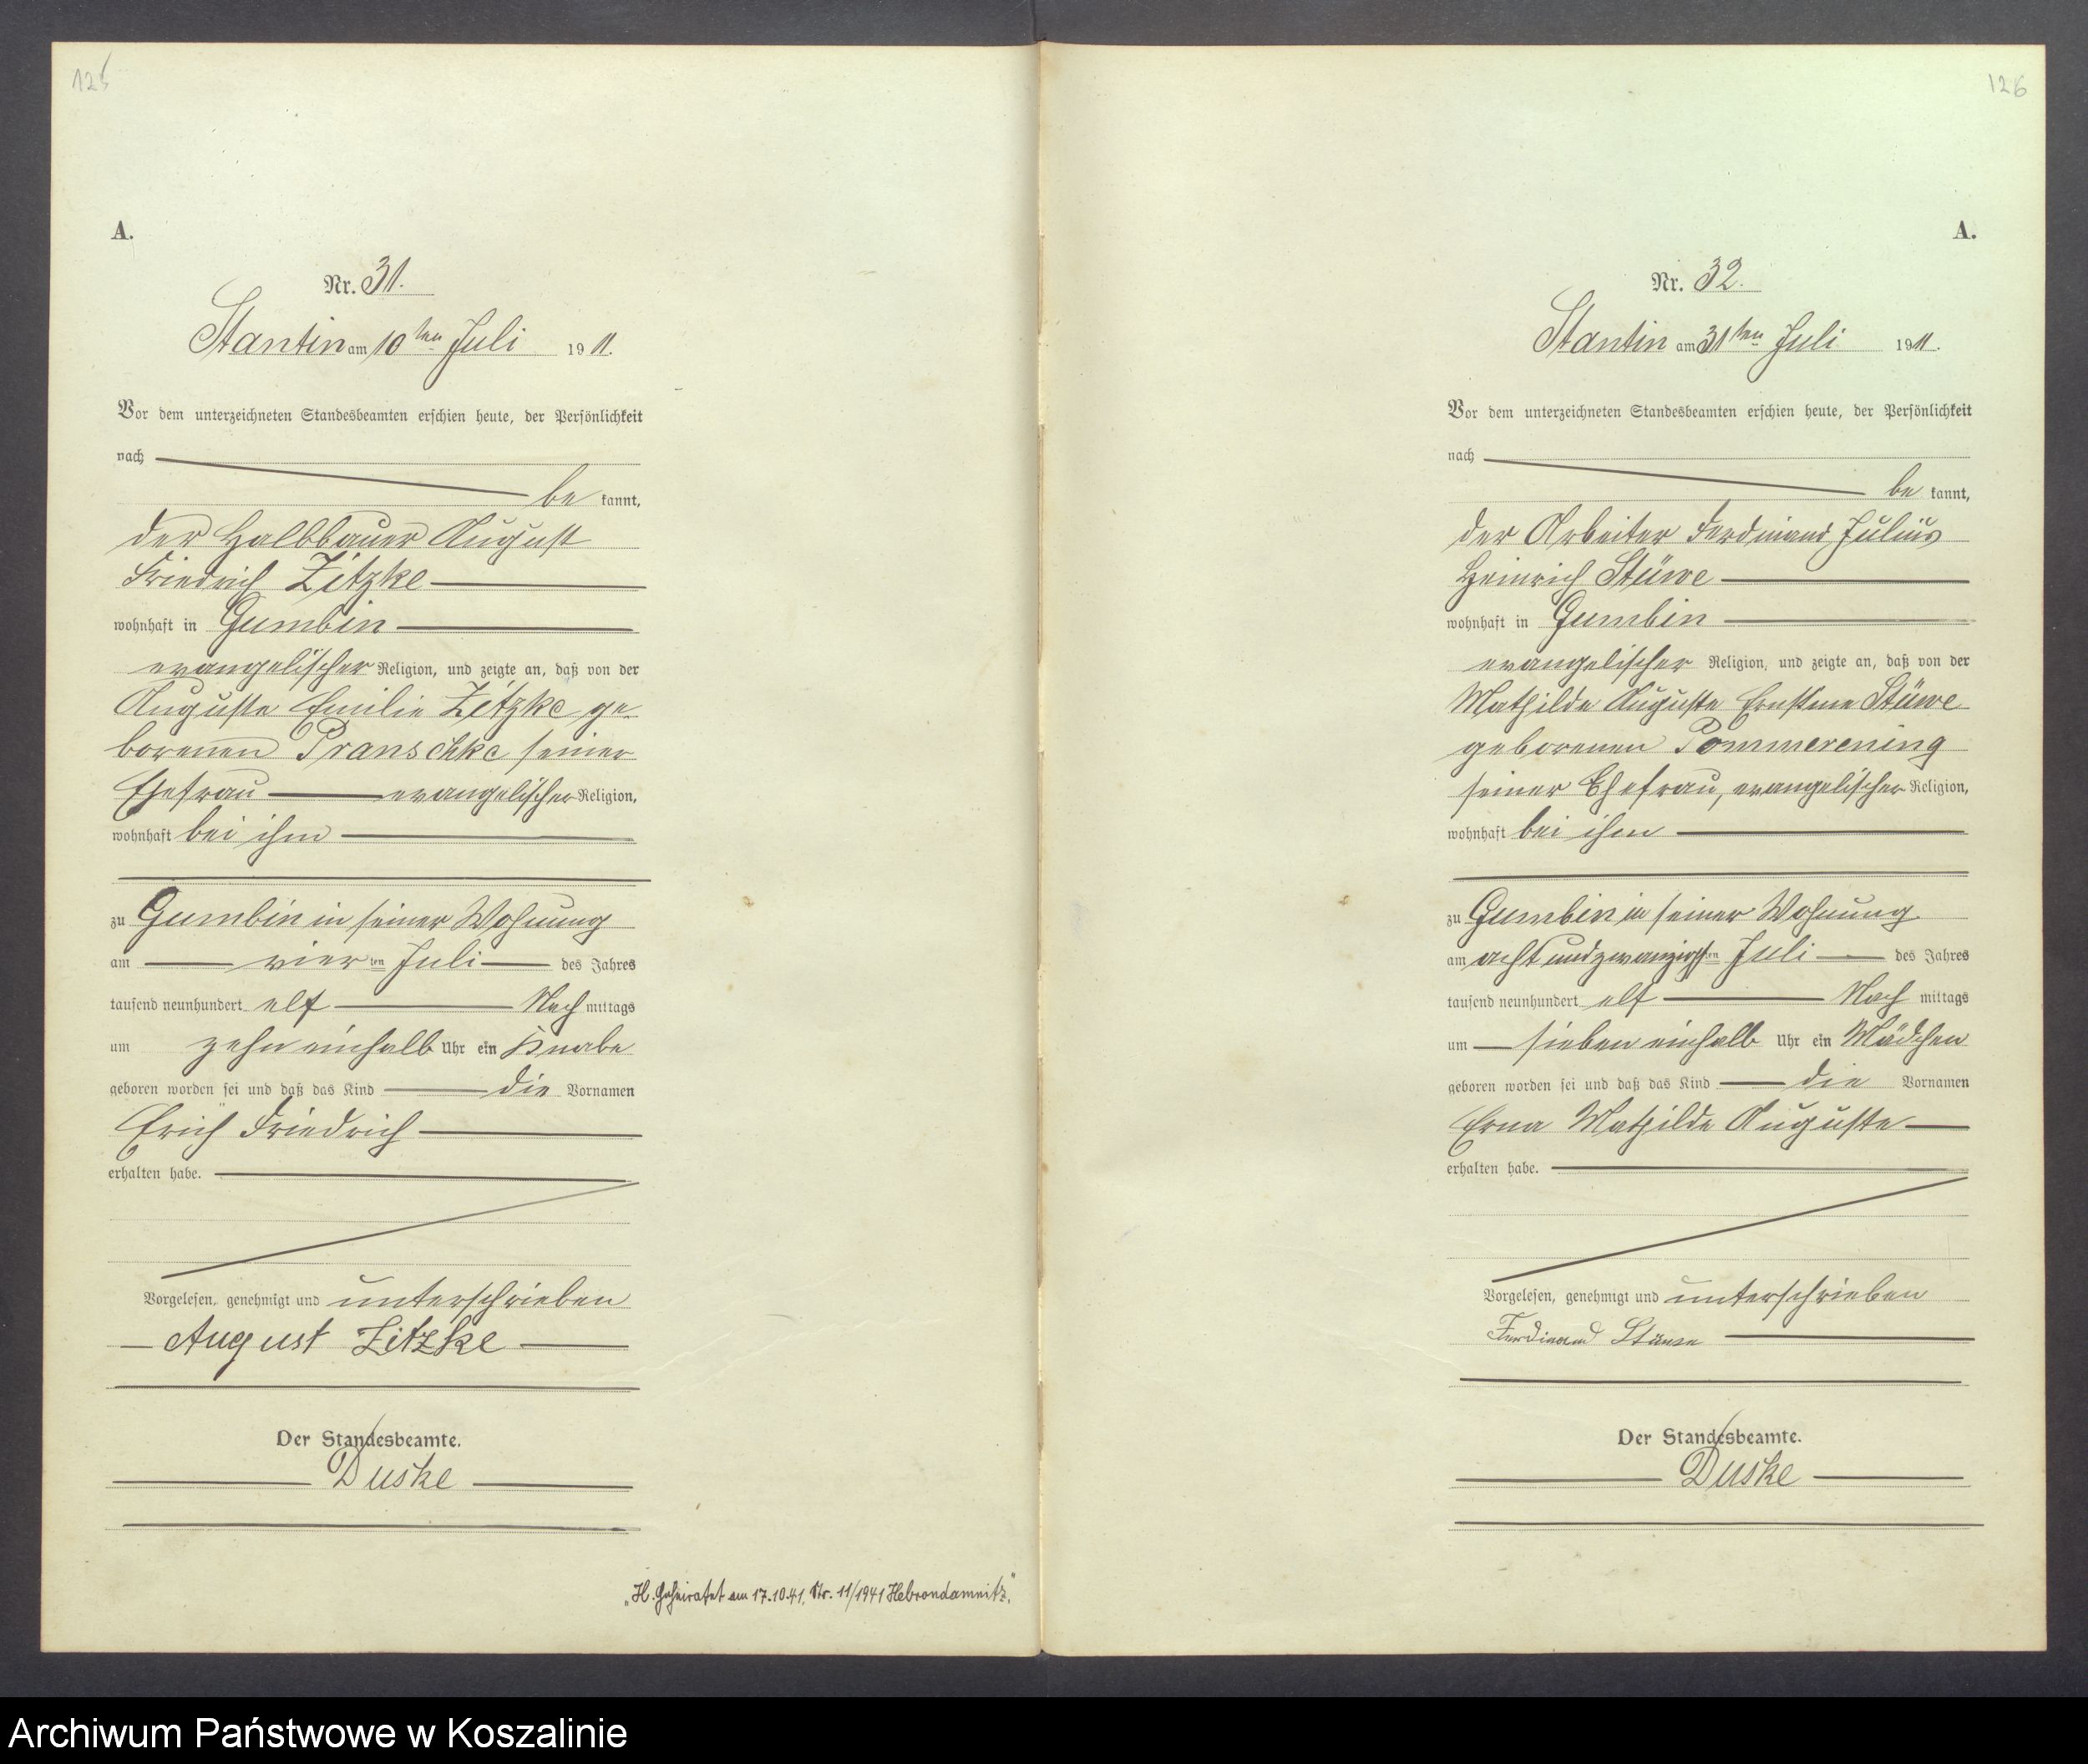 125
A.
Nr. 31.
Stantin am 10ten Juli 1911.
Vor dem unterzeichneten Standesbeamten erschien heute, der Persönlichkeit
nach
be kannt,
der Halbbauer August
Friedrich Zitzke
wohnhaft in Gumbin
evangelischer Religion, und zeigte an, daß von der
Auguste Emilie Zitzke ge-
borenen Pranschke seiner
Ehefrau evangelischer Religion,
wohnhaft bei ihm
zu Gumbin in seiner Wohnung
am vier ten Juli des Jahres
tausend neunhundert elf Nach mittags
um zehn einhalb Uhr ein Knabe
geboren worden sei und daß das Kind die Vornamen
Erich Friedrich
erhalten habe.
Vorgelesen, genehmigt und unterschrieben
August Zitzke
Der Standesbeamte.
Duske
„H. Geheiratet am 17.10.41. Nr. 11/1941 Hebrondamnitz."
126
A.
Nr. 32.
Stantin am 31ten Juli 1911.
Vor dem unterzeichneten Standesbeamten erschien heute, der Persönlichkeit
nach
be kannt,
der Arbeiter Ferdinand Julius
Heinrich Stüwe
wohnhaft in Gumbin
evangelischer Religion, und zeigte an, daß von der
Mathilde Auguste Ernstine Stüwe
geborenen Pommerening
seiner Ehefrau, evangelischer Religion,
wohnhaft bei ihm
zu Gumbin in seiner Wohnung
am acht und zwanzigsten Juli des Jahres
tausend neunhundert elf Nach mittags
um sieben einhalb Uhr ein Mädchen
geboren worden sei und daß das Kind die Vornamen
Erna Mathilde Auguste
erhalten habe.
Vorgelesen, genehmigt und unterschrieben
Ferdinand Stüwe
Der Standesbeamte.
Duske
Archiwum Państwowe w Koszalinie